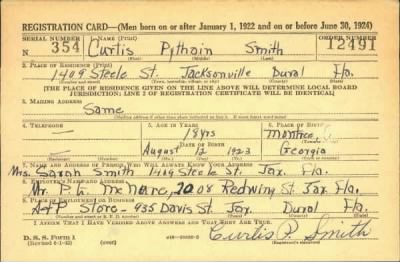 REGISTRATION CARD—(Men born on or after January 1, 1922 and on or before June 30, 1924)
SERIAL NUMBER 1. NAME (Print) ORDER NUMBER
354 Curtis Pythain Smith 12491
(First) (Middle) (Last)
2. PLACE OF RESIDENCE (Print)
1409 Steele St. Jacksonville Duval Fla.
(Number and street) (Town, township, village, or city) (County) (State)
[THE PLACE OF RESIDENCE GIVEN ON THE LINE ABOVE WILL DETERMINE LOCAL BOARD
JURISDICTION; LINE 2 OF REGISTRATION CERTIFICATE WILL BE IDENTICAL]
3. MAILING ADDRESS
Same
(Mailing address if other than place indicated on line 2. If same insert word same)
4. TELEPHONE 5. AGE IN YEARS 6. PLACE OF BIRTH
— 18 yrs
DATE OF BIRTH
August 12 1923 Georgia
7. NAME AND ADDRESS OF PERSON WHO WILL ALWAYS KNOW YOUR ADDRESS
Mrs. Sarah Smith 1409 Steele St. Jax. Fla.
8. EMPLOYER'S NAME AND ADDRESS
Mr. P. L. 2008 Redwing St Jax Fla.
9. PLACE OF EMPLOYMENT OR BUSINESS
A+P Store - 935 Davis St. Jax Duval Fla.
(Number and street or R. F. D. number) (Town) (County) (State)
I AFFIRM THAT I HAVE VERIFIED ABOVE ANSWERS AND THAT THEY ARE TRUE.
D. S. S. Form 1 Curtis P. Smith
(Revised 6-1-42) (over) (Registrant's signature)